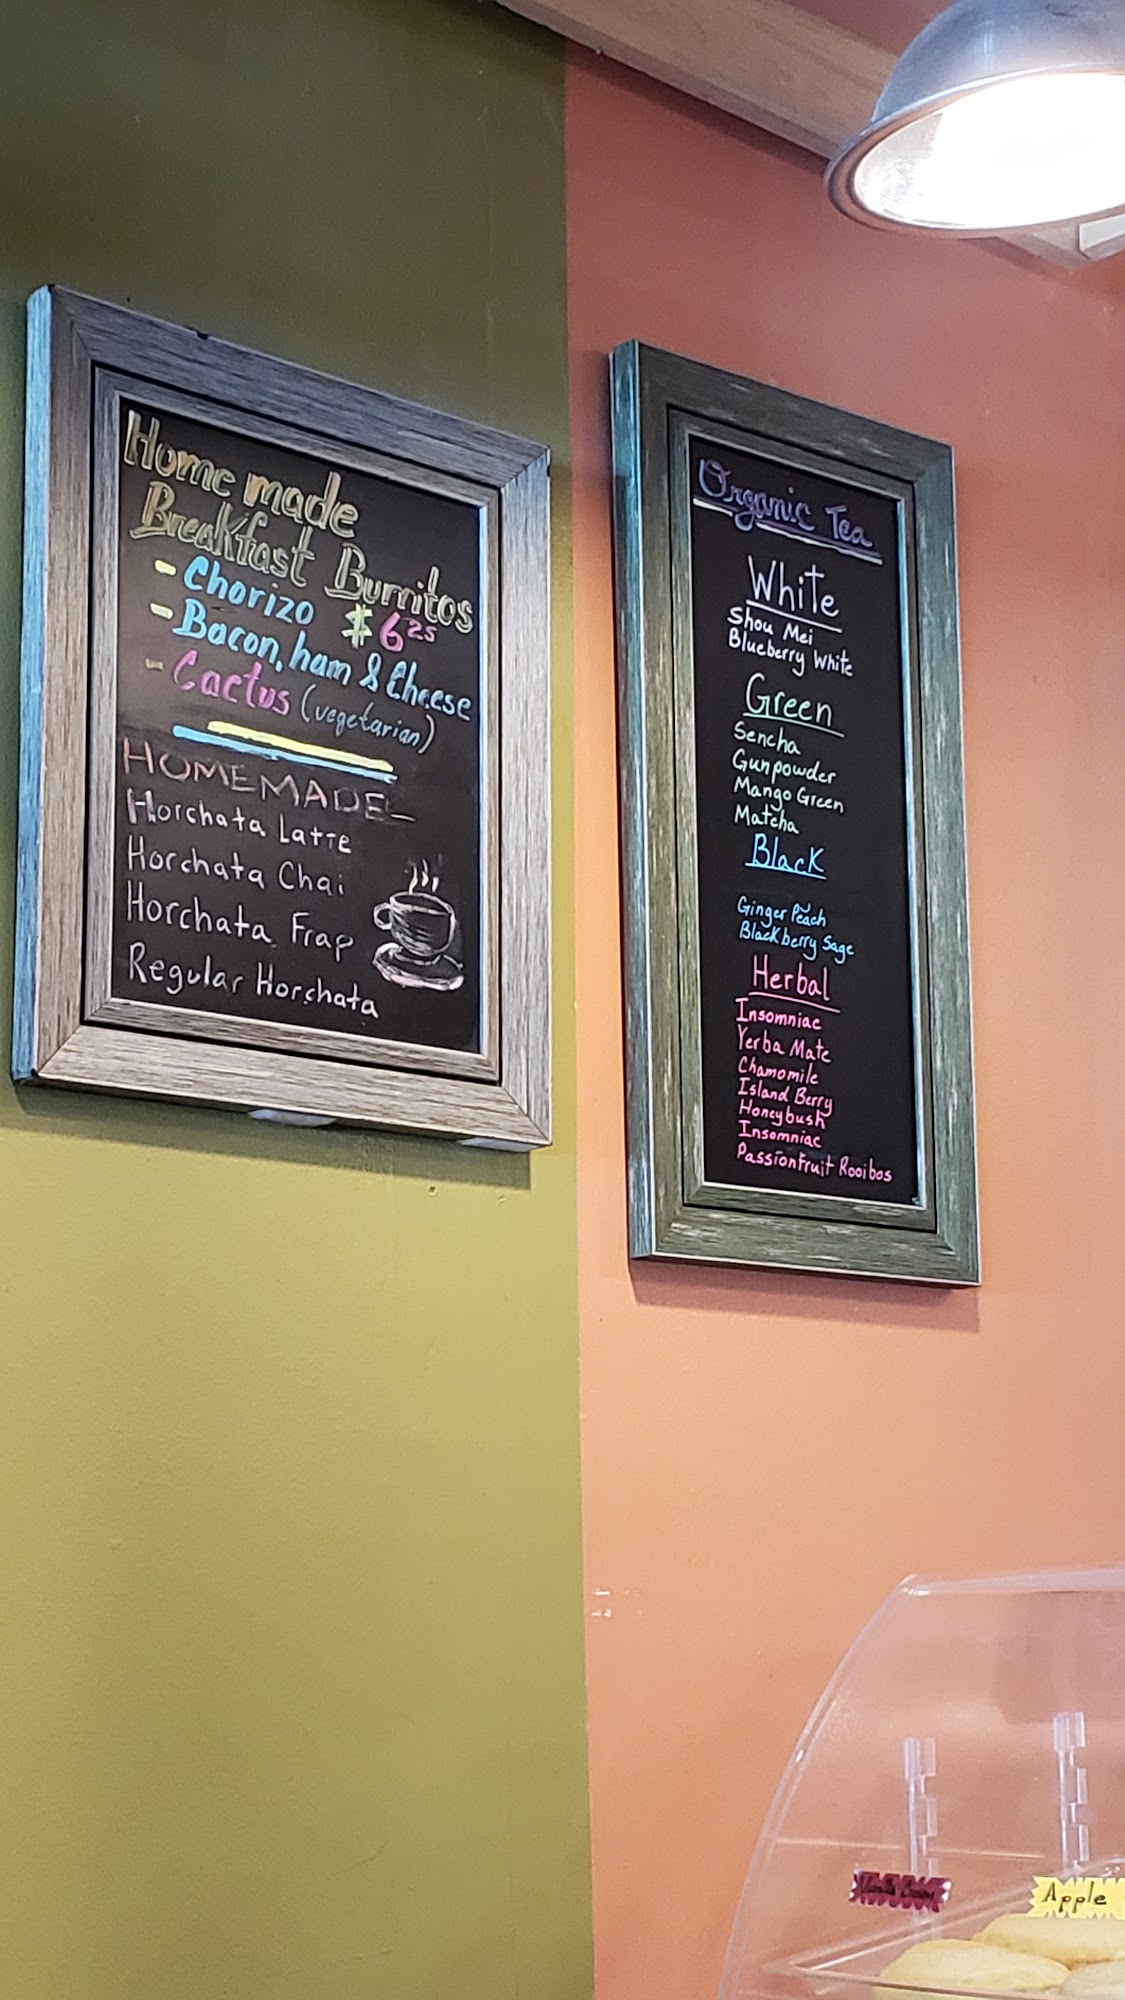 Home made
Breakfast Burritos
- Chorizo $6 25
- Bacon, ham & Cheese
- Cactus (vegetarian)
HOMEMADE-
Horchata Latte
Horchata Chai
Horchata Frap
Regular Horchata
Organic Tea
White
Shou Mei
Blueberry White
Green
Sencha
Gunpowder
Mango Green
Matcha
Black
Ginger Peach
Blackberry Sage
Herbal
Insomniac
Yerba Mate
Chamomile
Island Berry
Honeybush
Insomniac
Passionfruit Rooibos
Apple